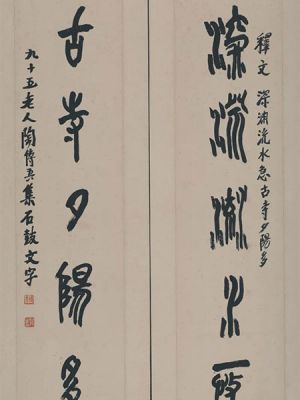 釋文 深淵流水急古寺夕陽多
深
水
古寺夕陽多
九十五老人陶博吾集石鼓文字